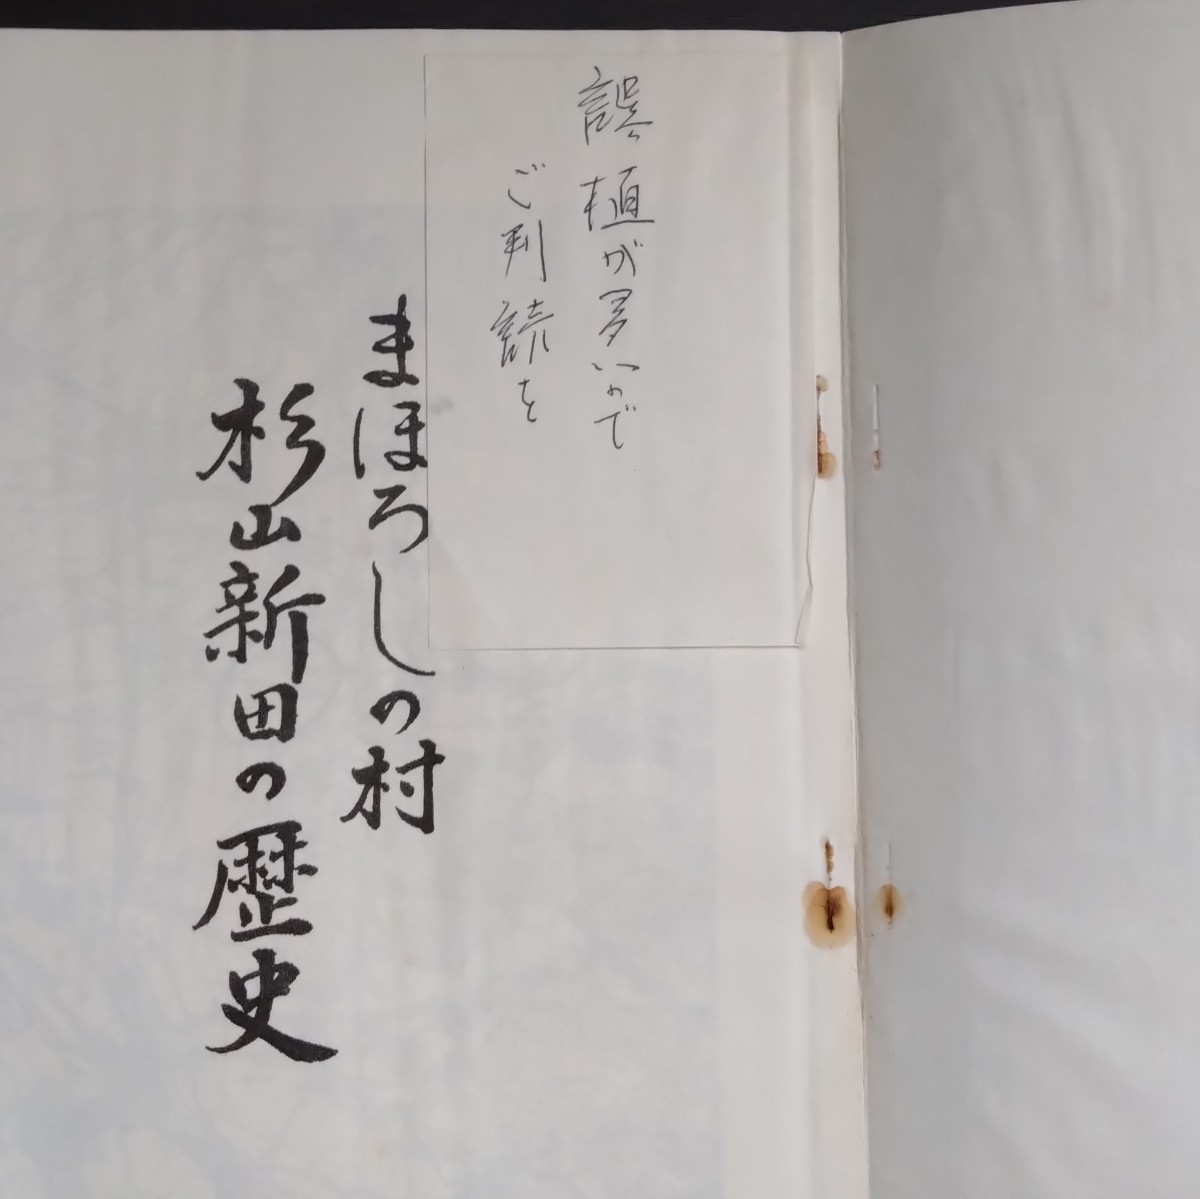 誤植が多いので
ご判読を
まほろしの村
杉山新田の歴史